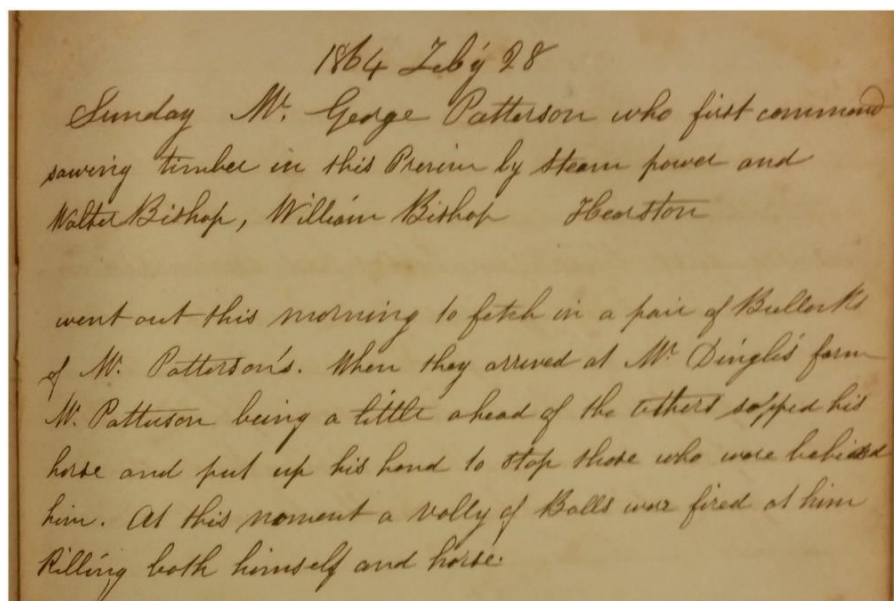 1864 Feb'y 28
Sunday Mr. George Patterson who first commenced
sawing timber in this Provim by steam power and
Walter Bishop, William Bishop Hearston
went out this morning to fetch in a pair of Bullocks
of Mr. Patterson's. When they arrived at Mr. Dingle's farm
Mr. Patterson being a little ahead of the others sopped his
horse and put up his hand to stop those who were behind
him. At this moment a volly of Balls was fired at him
Killing both himself and horse.